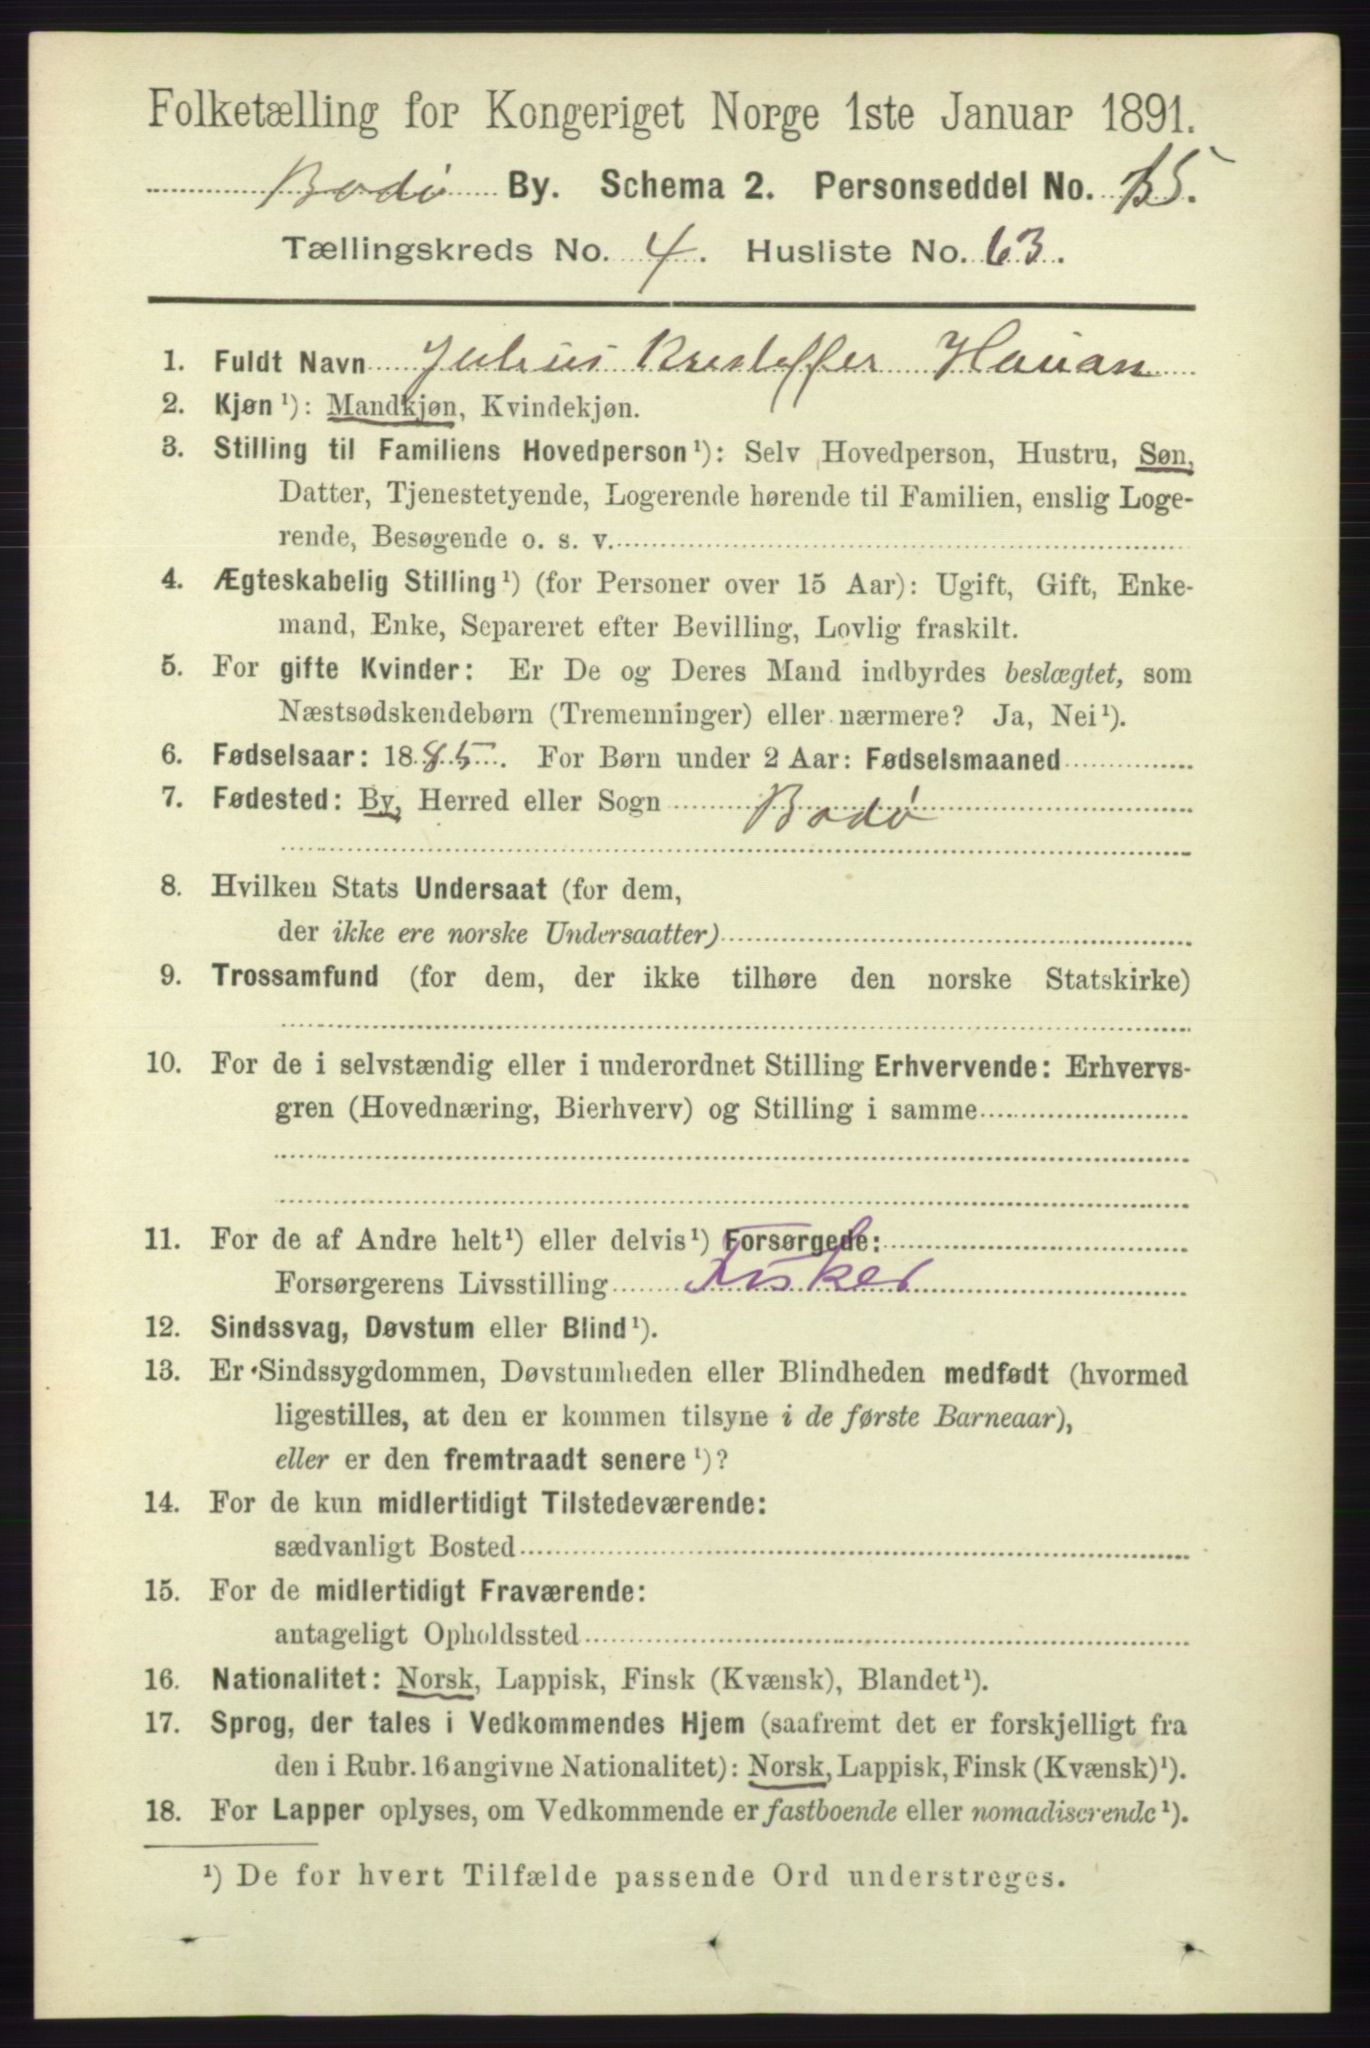 Folketælling for Kongeriget Norge 1ste Januar 1891.
Bodø By. Schema 2. Personseddel No. 15.
Tællingskreds No. 4. Husliste No. 63.
1. Fuldt Navn Julius Kristoffer Hauan
2. Kjøn¹): Mandkjøn, Kvindekjøn.
3. Stilling til Familiens Hovedperson¹): Selv Hovedperson, Hustru, Søn,
Datter, Tjenestetyende, Logerende hørende til Familien, enslig Loge-
rende, Besøgende o. s. v.
4. Ægteskabelig Stilling¹) (for Personer over 15 Aar): Ugift, Gift, Enke-
mand, Enke, Separeret efter Bevilling, Lovlig fraskilt.
5. For gifte Kvinder: Er De og Deres Mand indbyrdes beslægtet, som
Næstsødskendebørn (Tremenninger) eller nærmere? Ja, Nei¹).
6. Fødselsaar: 1885. For Børn under 2 Aar: Fødselsmaaned
7. Fødested: By, Herred eller Sogn Bodø
8. Hvilken Stats Undersaat (for dem,
der ikke ere norske Undersaatter)
9. Trossamfund (for dem, der ikke tilhøre den norske Statskirke)
10. For de i selvstændig eller i underordnet Stilling Erhvervende: Erhvervs-
gren (Hovednæring, Bierhverv) og Stilling i samme
11. For de af Andre helt¹) eller delvis¹) Forsørgede:
Forsørgerens Livsstilling Fisker
12. Sindssvag, Døvstum eller Blind¹).
13. Er Sindssygdommen, Døvstumheden eller Blindheden medfødt (hvormed
ligestilles, at den er kommen tilsyne i de første Barneaar),
eller er den fremtraadt senere¹)?
14. For de kun midlertidigt Tilstedeværende:
sædvanligt Bosted
15. For de midlertidigt Fraværende:
antageligt Opholdssted
16. Nationalitet: Norsk, Lappisk, Finsk (Kvænsk), Blandet¹).
17. Sprog, der tales i Vedkommendes Hjem (saafremt det er forskjelligt fra
den i Rubr. 16 angivne Nationalitet): Norsk, Lappisk, Finsk (Kvænsk)¹).
18. For Lapper oplyses, om Vedkommende er fastboende eller nomadiserende¹).
¹) De for hvert Tilfælde passende Ord understreges.